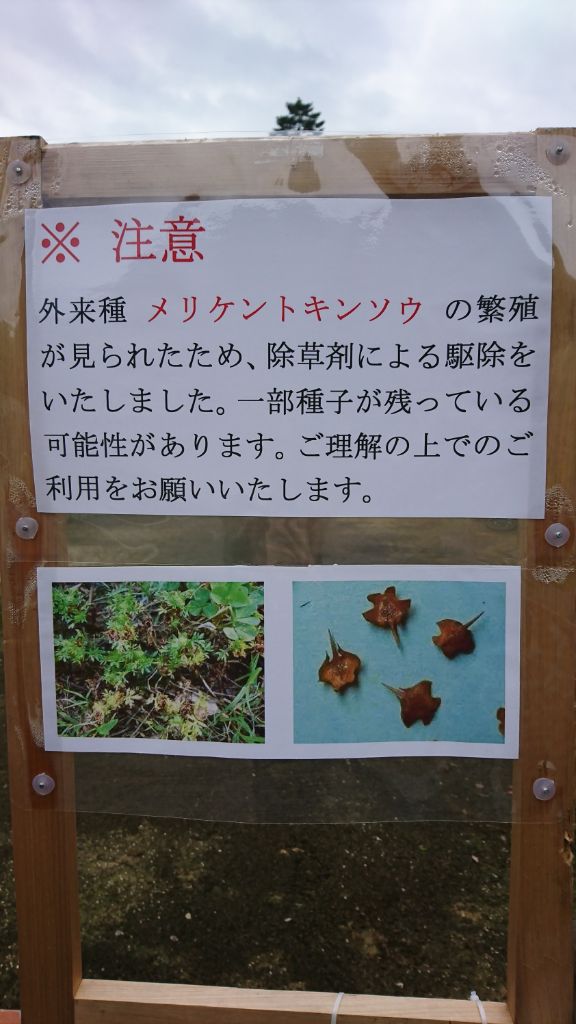 ※ 注意
外来種 メリケントキンソウ の繁殖
が見られたため、除草剤による駆除を
いたしました。一部種子が残っている
可能性があります。ご理解の上でのご
利用をお願いいたします。